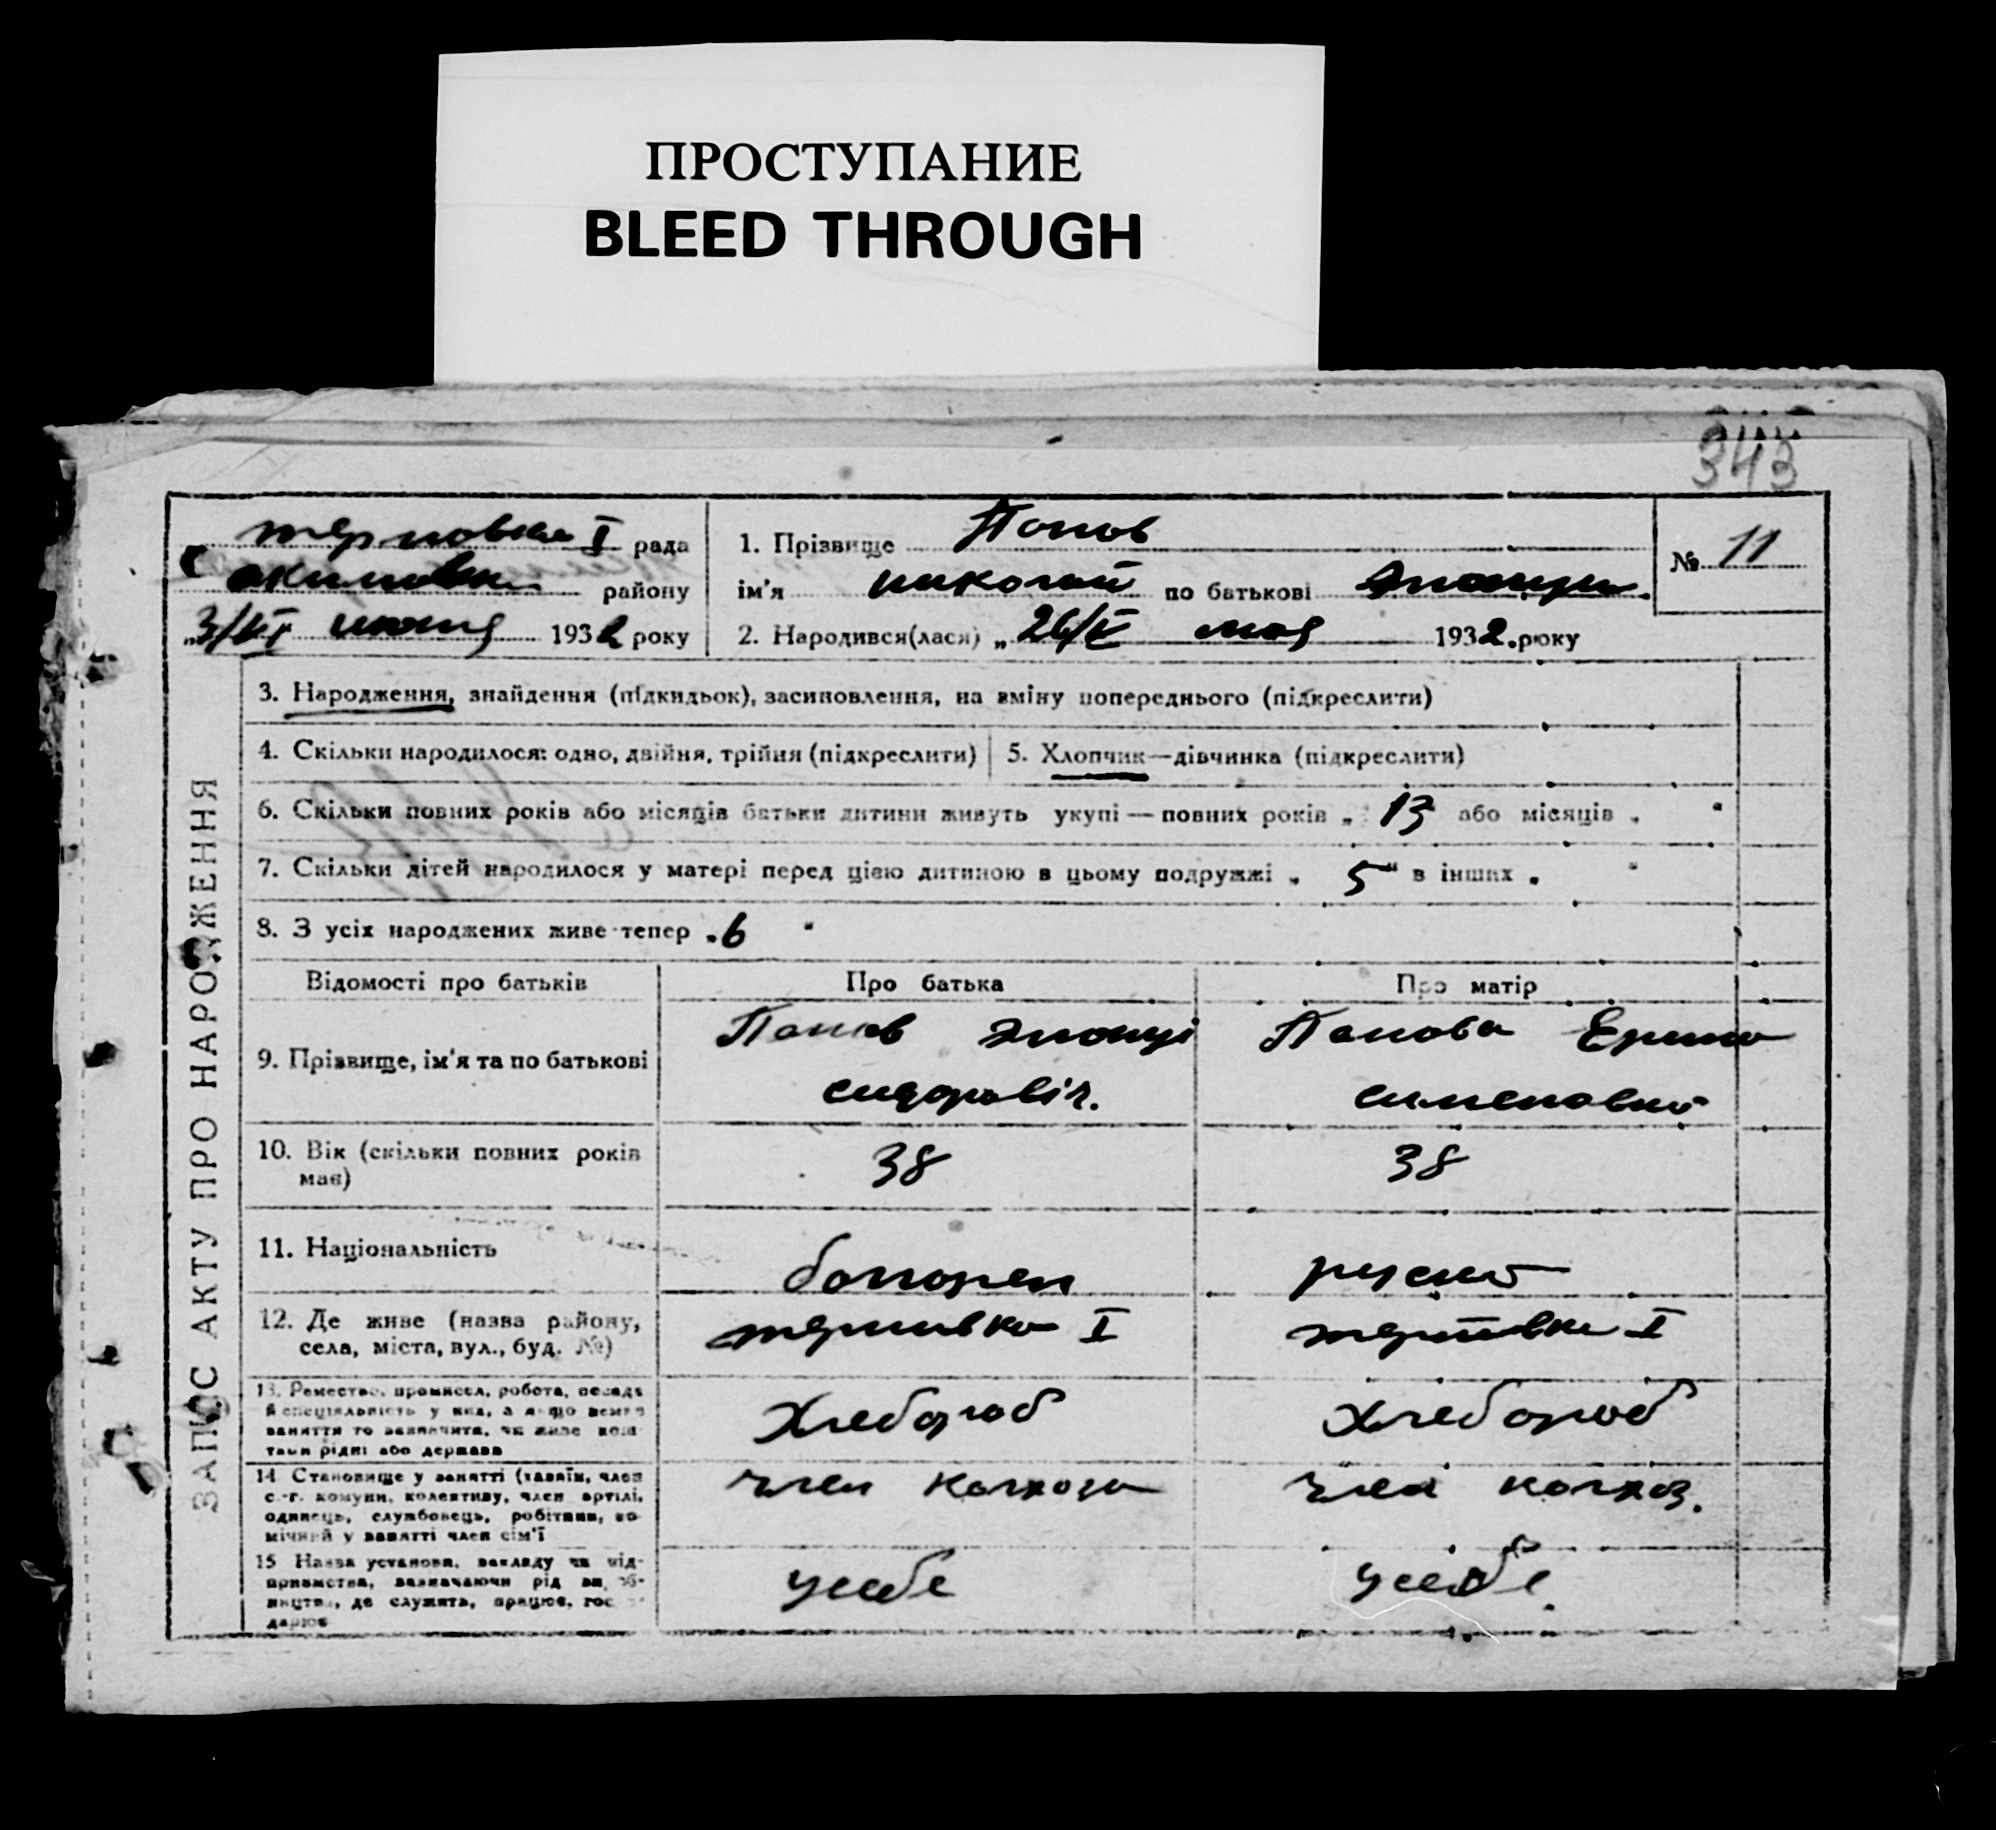 ПРОСТУПАНИЕ
BLEED THROUGH
343
терновка I рада
акимовка району
„3/VI июня 1932 року
1. Прізвище Попов
ім'я николай по батькові
2. Народився(лася) „26/V мая 1932. року
№ 11
ЗАПИС АКТУ ПРО НАРОДЖЕННЯ
3. Народження, знайдення (підкидьок), засиновлення, на зміну попереднього (підкреслити)
4. Скільки народилося: одно, двійня, трійня (підкреслити)
5. Хлопчик—дівчинка (підкреслити)
6. Скільки повних років або місяців батьки дитини живуть укупі — повних років „ 13 або місяців „ "
7. Скільки дітей народилося у матері перед цією дитиною в цьому подружжі „ 5 " в інших „ "
8. З усіх народжених живе тепер „ 6 "
Відомості про батьків Про батька Про матір
9. Прізвище, ім'я та по батькові
Попов
сидоровіч.
Попова Ерина
сименовна
10. Вік (скільки повних років
має)
38 38
11. Національність
болгарен руска
12. Де живе (назва району,
села, міста, вул., буд. №)
терновка I терновка I
13. Ремество, промисел, робота, посада
й спеціяльність у них, а якщо немає
заняття то зазначити, чи живе кош-
тами рідні або держави
Хлебороб Хлебороб
14 Становище у занятті (хазяїн, член
с.-г. комуни, колективу, член артілі,
одинець, службовець, робітник, по-
мічний у занятті член сім'ї
член колхоза член колхоз.
15 Назва установи, закладу чи під-
приємства, зазначаючи рід
де служить, працює,
усебе усебе.